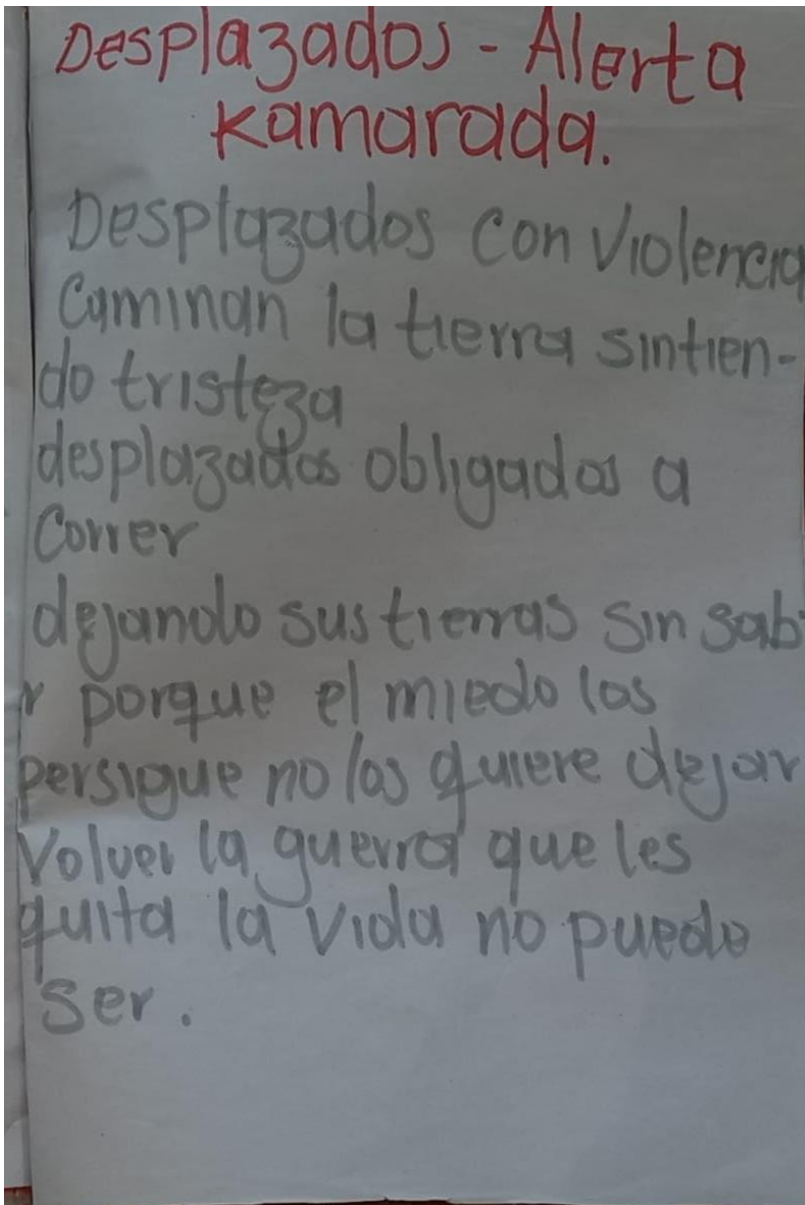 Desplazados - Alerta
Kamarada.
Desplazados con violencia
Caminan la tierra sintien-
do tristeza
desplazados obligados a
Correr
dejando sus tierras sin sab
r porque el miedo los
persigue no los quiere dejar
Volver la guerra que les
quita la vida no puede
ser.